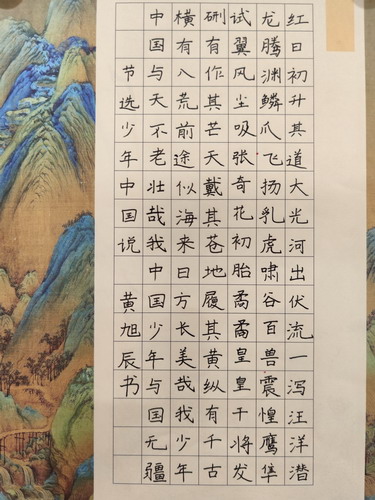 红日初升其道大光河出伏流一泻汪洋潜
龙腾渊鳞爪飞扬乳虎啸谷百兽震惶鹰隼
试翼风尘吸张奇花初胎矞矞皇皇干将发
硎有作其芒天戴其苍地履其黄纵有千古
横有八荒前途似海来日方长美哉我少年
中国与天不老壮哉我中国少年与国无疆
节选少年中国说 黄旭辰书